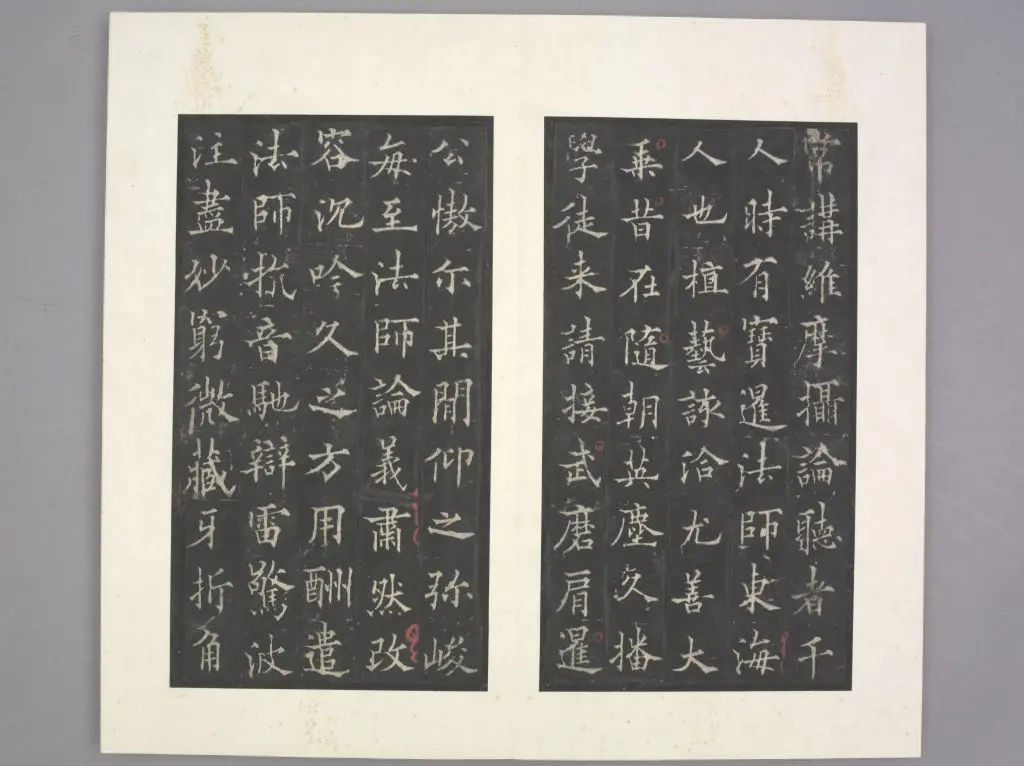 常講維摩攝論聽者千
人時有寶暹法師東海
人也植藝該洽尤善大
乘昔在隨朝英塵久播
學徒來請接武磨肩暹
公慠尒其閒仰之弥峻
每至法師論義肅然改
容沉吟久之方用酬遣
法師抗音馳辯雷驚波
注盡妙窮微藏牙折角